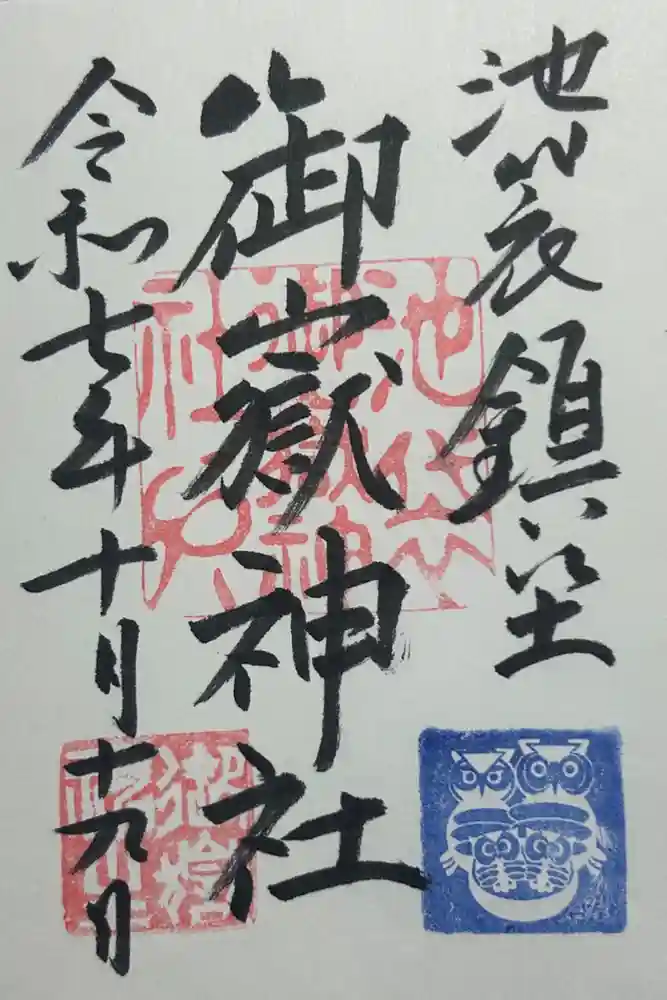 池袋鎮座
御嶽神社
令和七年十月十九日